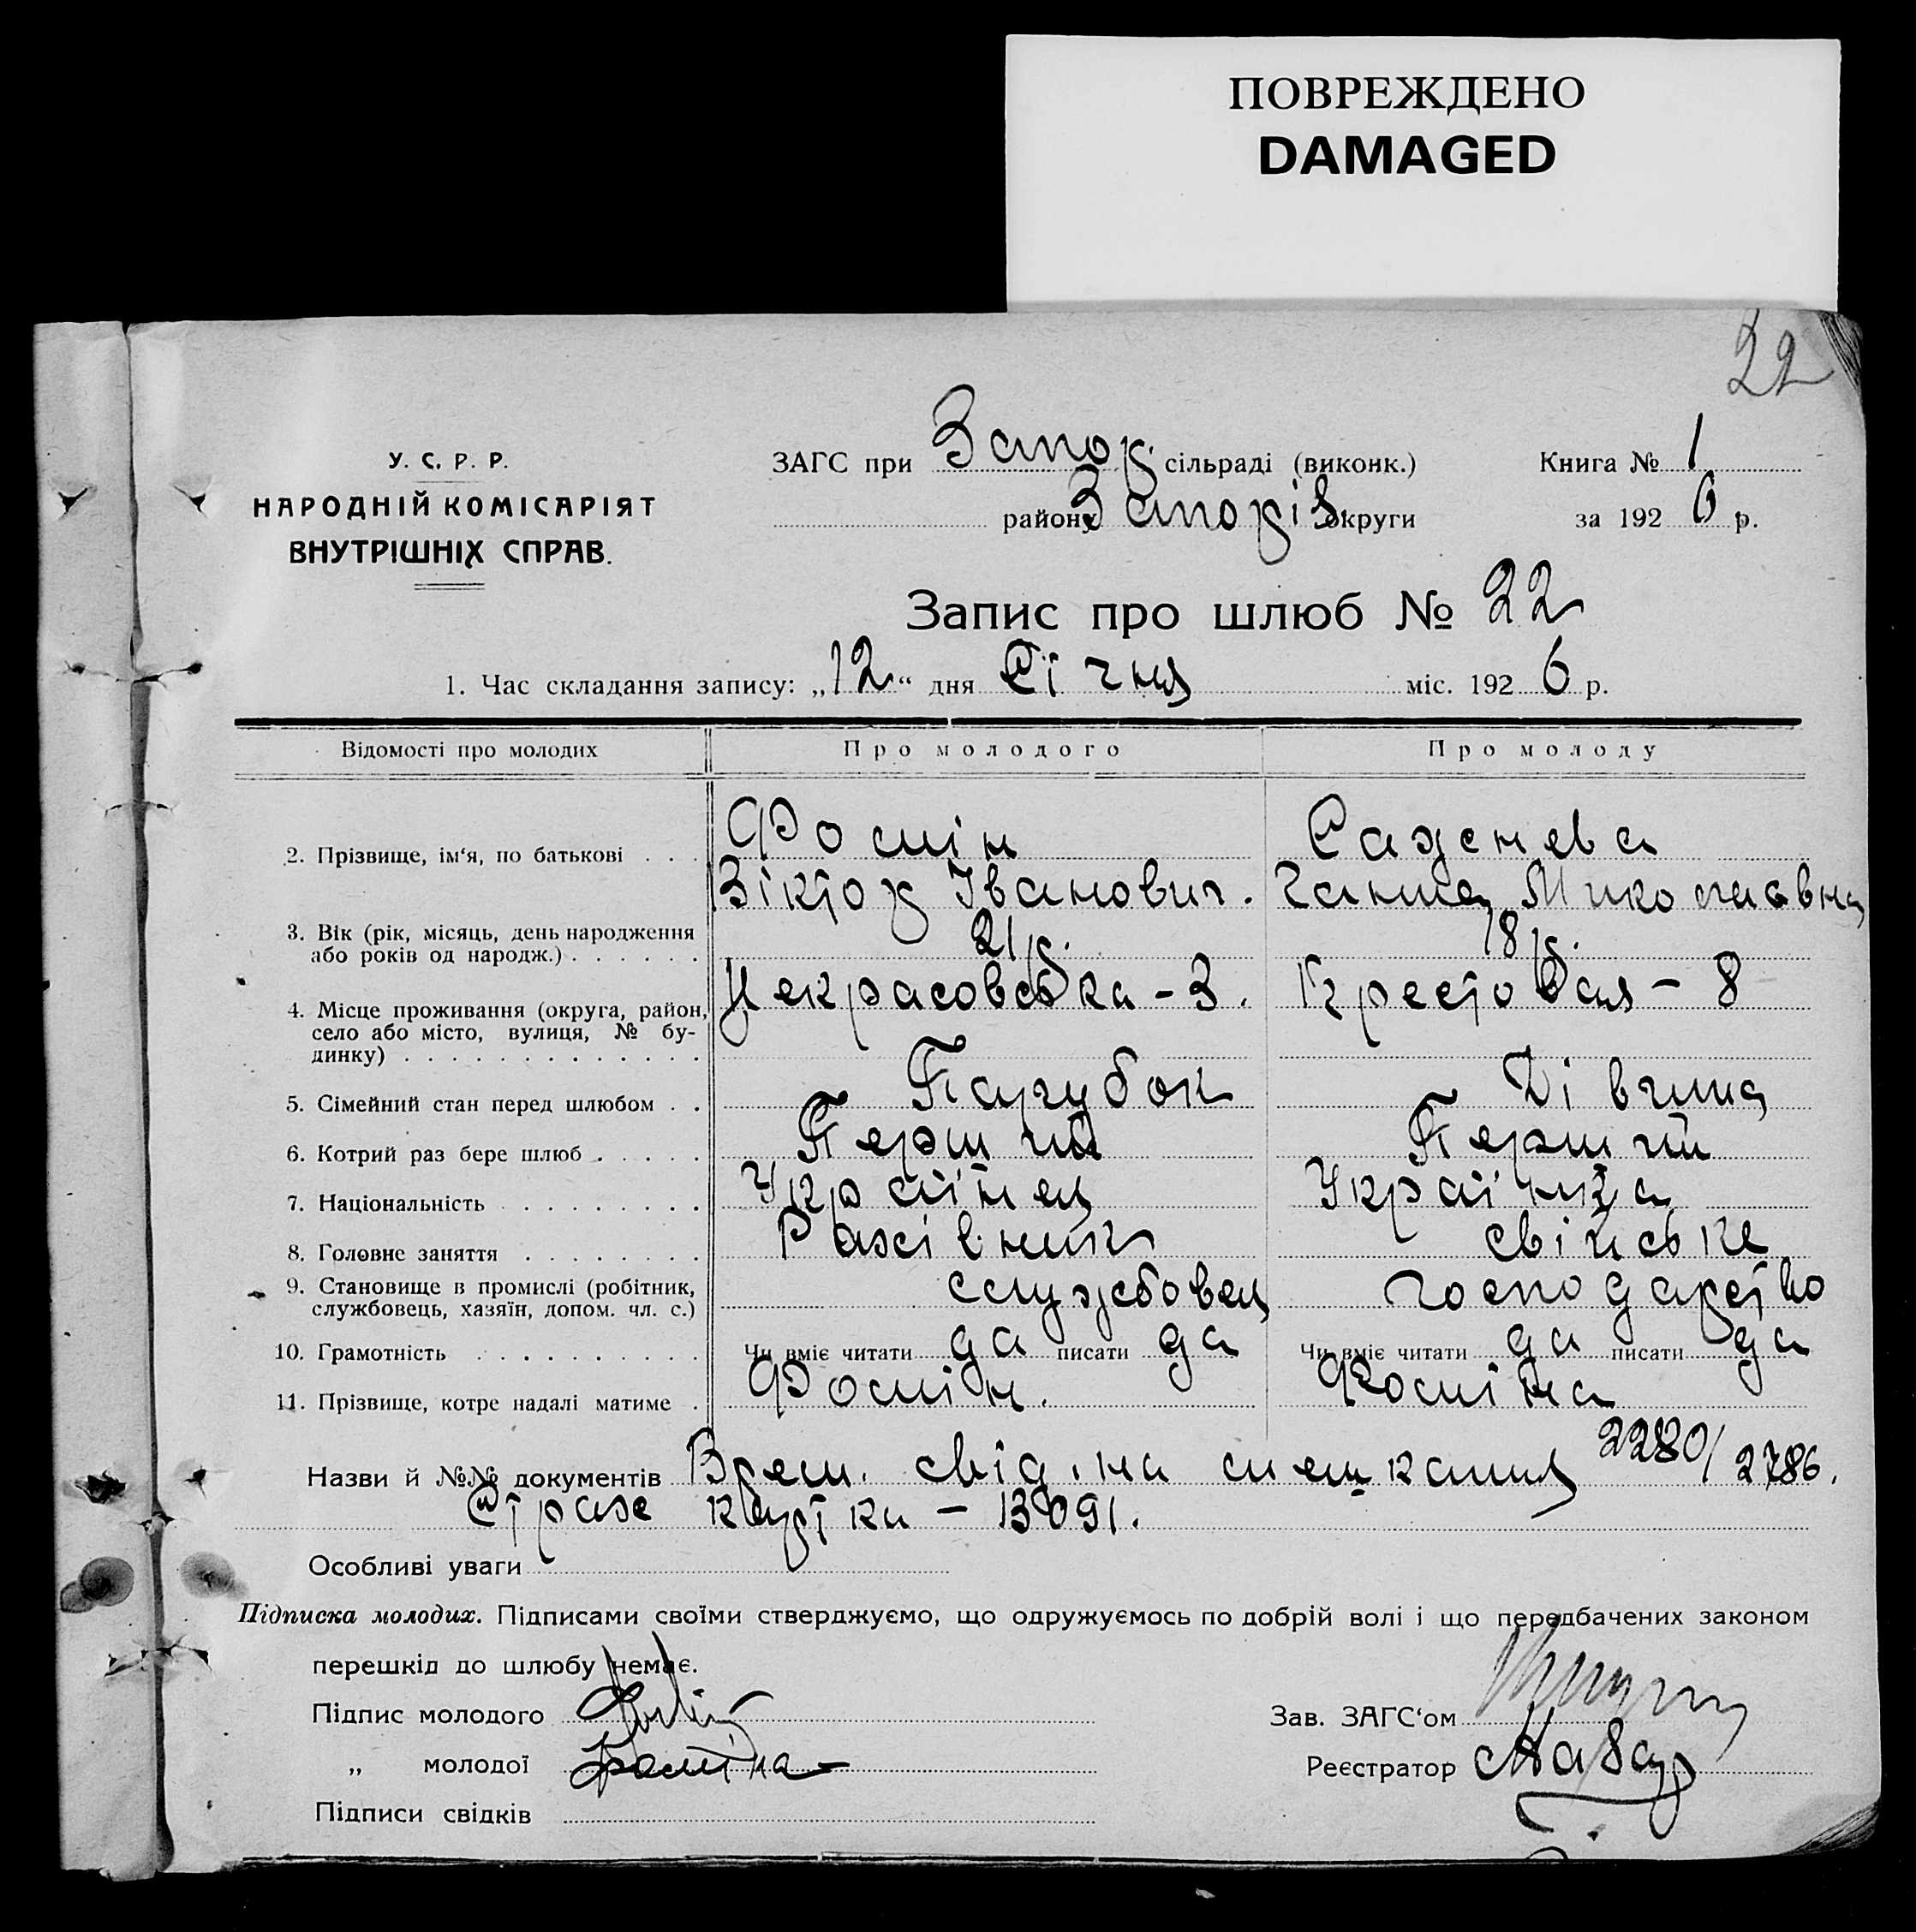 ПОВРЕЖДЕНО
DAMAGED
22
У. С. Р. Р.
НАРОДНІЙ КОМІСАРІЯТ
ВНУТРІШНІХ СПРАВ.
ЗАГС при Запор. сільраді (виконк.)
району Запоріз. округи
Книга № 1
за 1926 р.
Запис про шлюб № 22
1. Час складання запису: „12“ дня Січня міс. 1926 р.
Відомості про молодих Про молодого Про молоду
2. Прізвище, ім‘я, по батькові . . . Фомін Саженева
Віктор Іванович. Ганна Миколаавна
3. Вік (рік, місяць, день народження
або років од народж.) . . . . . . 21 р. 18 р.
4. Місце проживання (округа, район,
село або місто, вулиця, № бу-
динку) . . . . . . . . . . . . Некрасовська - 3. Крестовая - 8
5. Сімейний стан перед шлюбом . . Парубок Дівчина
6. Котрий раз бере шлюб . . . . . Перший Перший
7. Національність . . . . . . . . . Українец Українка
8. Головне заняття . . . . . . . . Рахівник свійське
9. Становище в промислі (робітник,
службовець, хазяїн, допом. чл. с.) службовец господарство
10. Грамотність . . . . . . . . . . Чи вміє читати да писати да Чи вміє читати да писати да
11. Прізвище, котре надалі матиме . Фомін. Фоміна
Назви й №№ документів Врем. свід. на мешкання 2280/2786.
Страх картка - 13091.
Особливі уваги
Підписка молодих. Підписами своїми стверджуємо, що одружуємось по добрій волі і що передбачених законом
перешкід до шлюбу немає.
Підпис молодого
„ молодої Фоміна
Підписи свідків
Зав. ЗАГС‘ом
Реєстратор